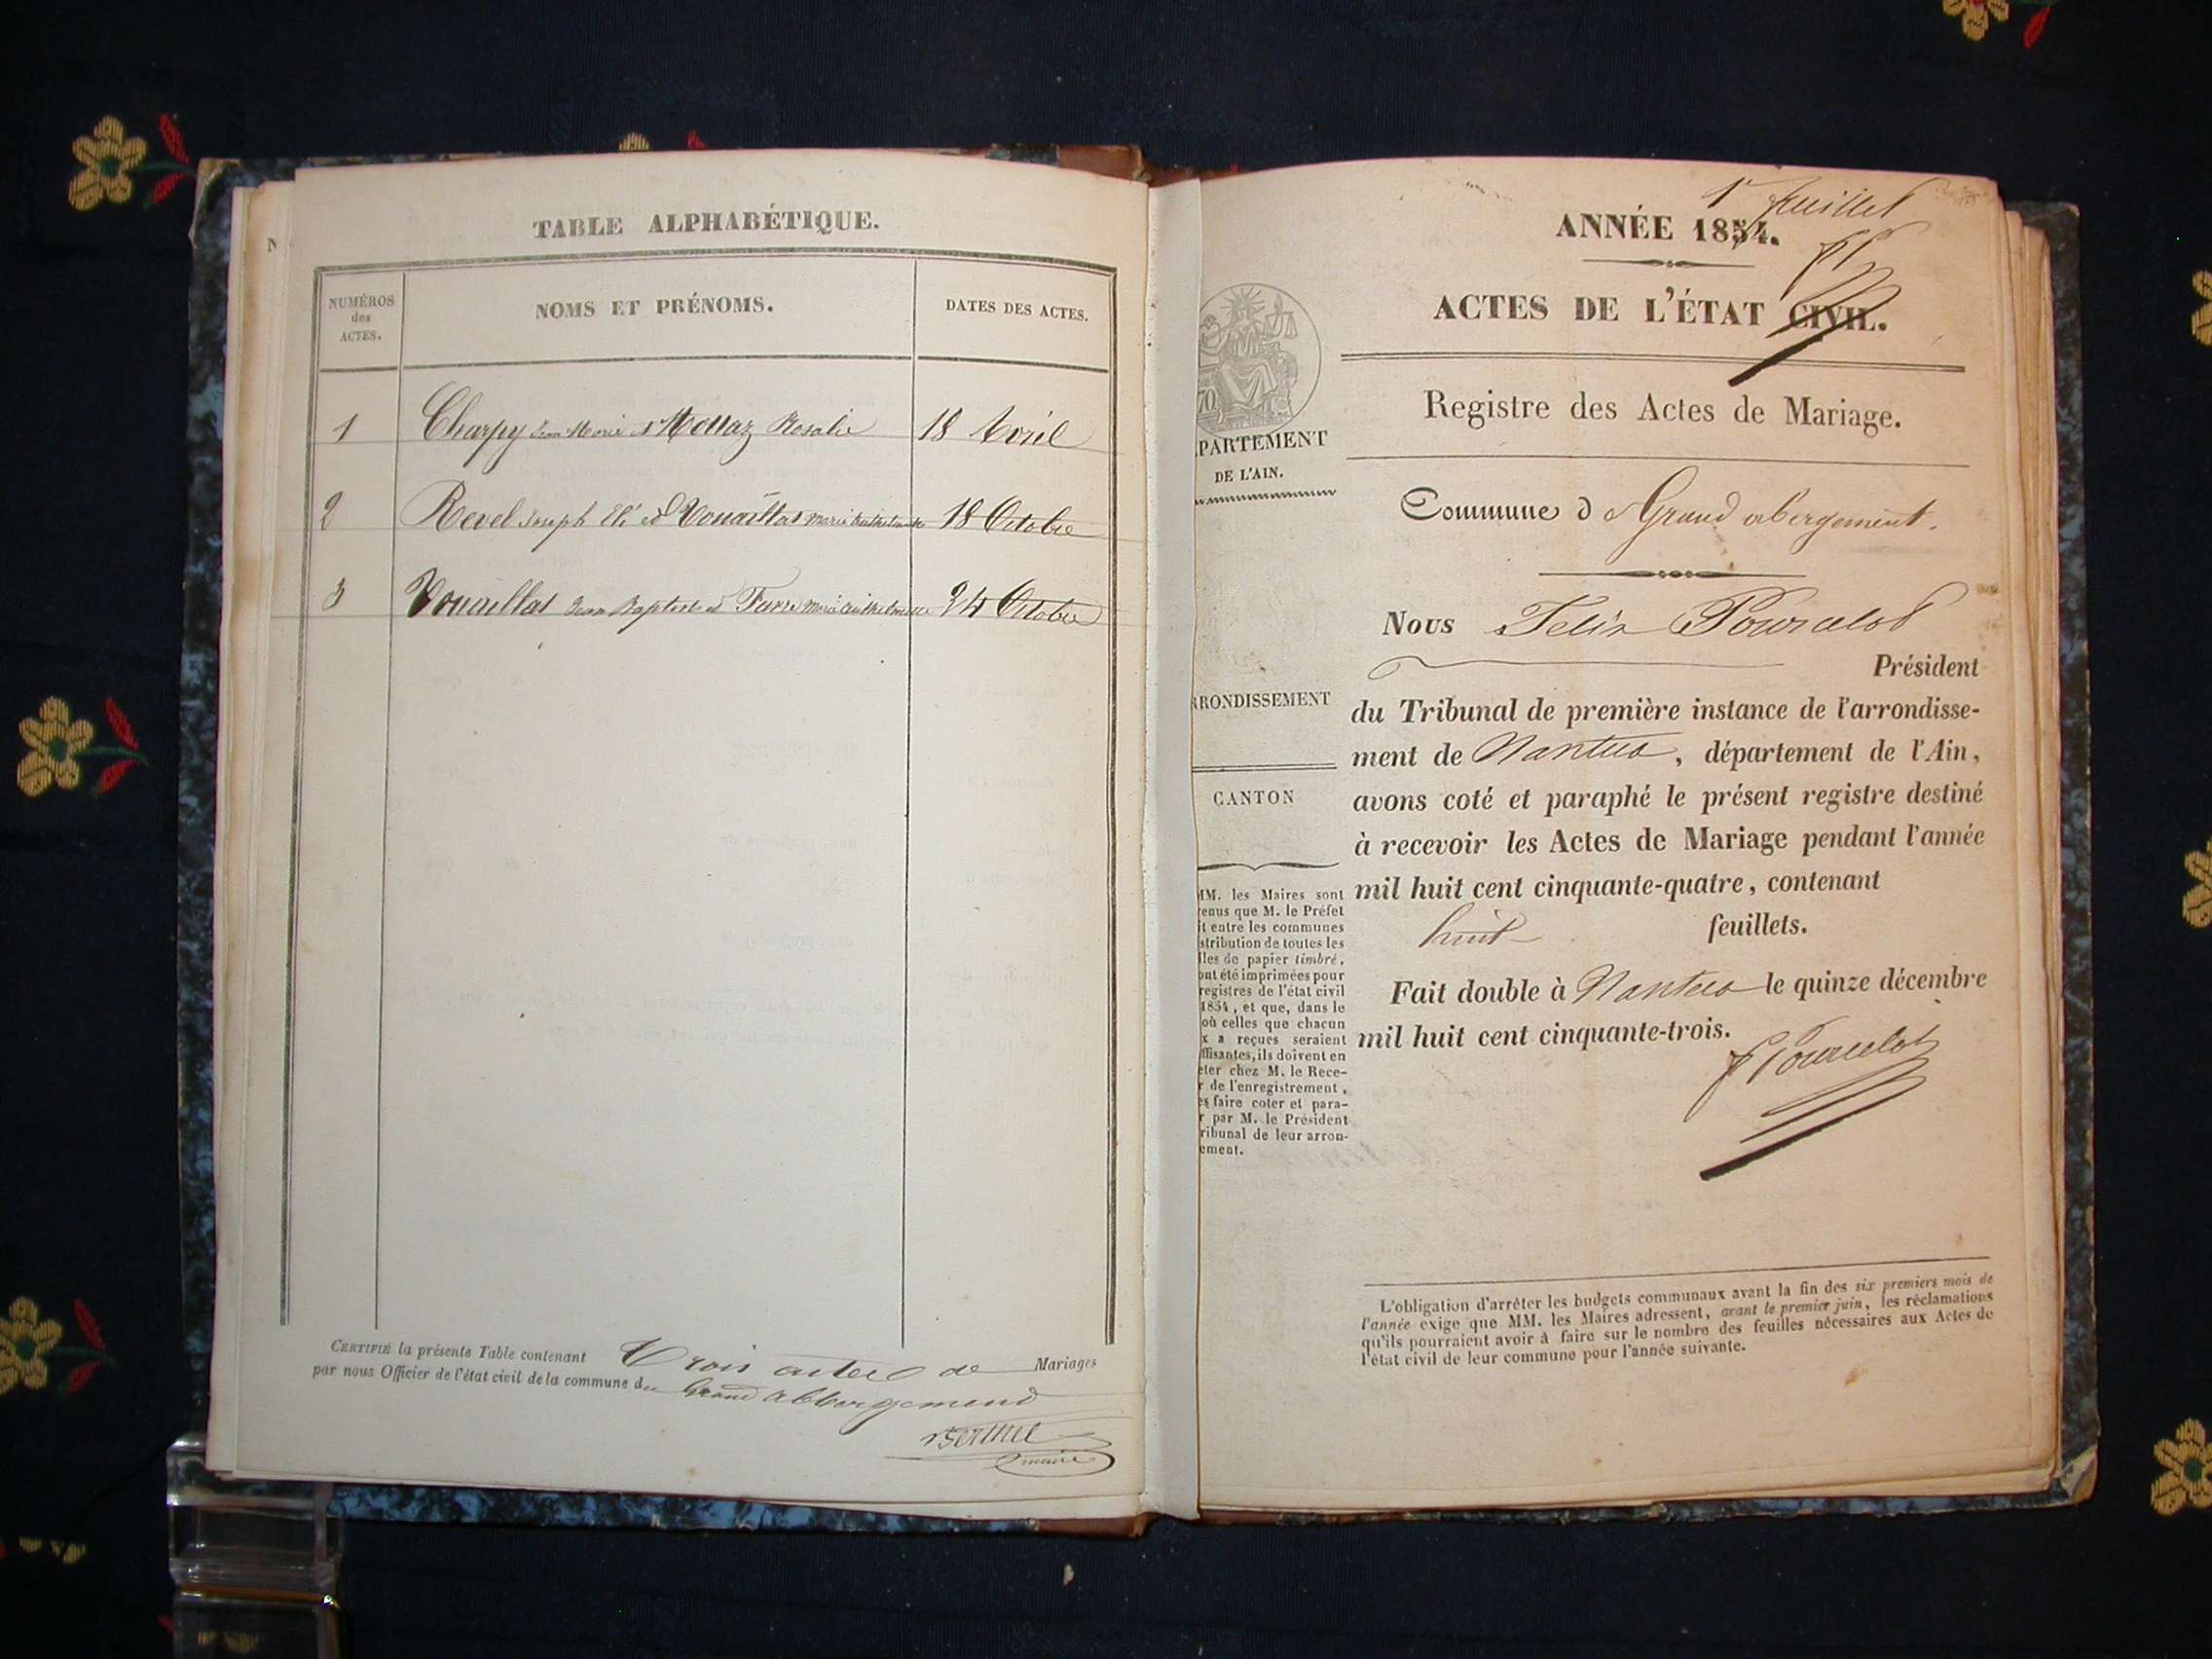 TABLE ALPHABÉTIQUE.
NUMÉROS
des
ACTES.
NOMS ET PRÉNOMS.
DATES DES ACTES.
1 Charpy Jean Marie et Mottaz Rosalie 18 Avril
2 Revel Joseph Eli et Vouaillat Marie 18 Octobre
3 Vouaillat Jean Baptist et Marie 24 Octobre
CERTIFIÉ la présente Table contenant Trois actes de Mariages
par nous Officier de l'état civil de la commune du Grand abbergement
Berthet
maire
1r feuillet
ANNÉE 1854.
ACTES DE L'ÉTAT CIVIL.
Registre des Actes de Mariage.
PARTEMENT
DE L'AIN.
Commune d Grand abergement.
Nous Felix Pourcelot
Président
du Tribunal de première instance de l'arrondisse-
ment de Nantua, département de l'Ain,
avons coté et paraphé le présent registre destiné
à recevoir les Actes de Mariage pendant l'année
mil huit cent cinquante-quatre, contenant
huit feuillets.
Fait double à Nantua le quinze décembre
mil huit cent cinquante-trois.
F Pourcelot
RRONDISSEMENT
CANTON
MM. les Maires sont
enus que M. le Préfet
it entre les communes
stribution de toutes les
lles de papier timbré,
ont été imprimées pour
registres de l'état civil
1854, et que, dans le
où celles que chacun
x a reçues seraient
ffisantes, ils doivent en
eter chez M. le Rece-
r de l'enregistrement,
es faire coter et para-
r par M. le Président
ribunal de leur arron-
ement.
L'obligation d'arrêter les budgets communaux avant la fin des six premiers mois de
l'année exige que MM. les Maires adressent, avant le premier juin, les réclamations
qu'ils pourraient avoir à faire sur le nombre des feuilles nécessaires aux Actes de
l'état civil de leur commune pour l'année suivante.